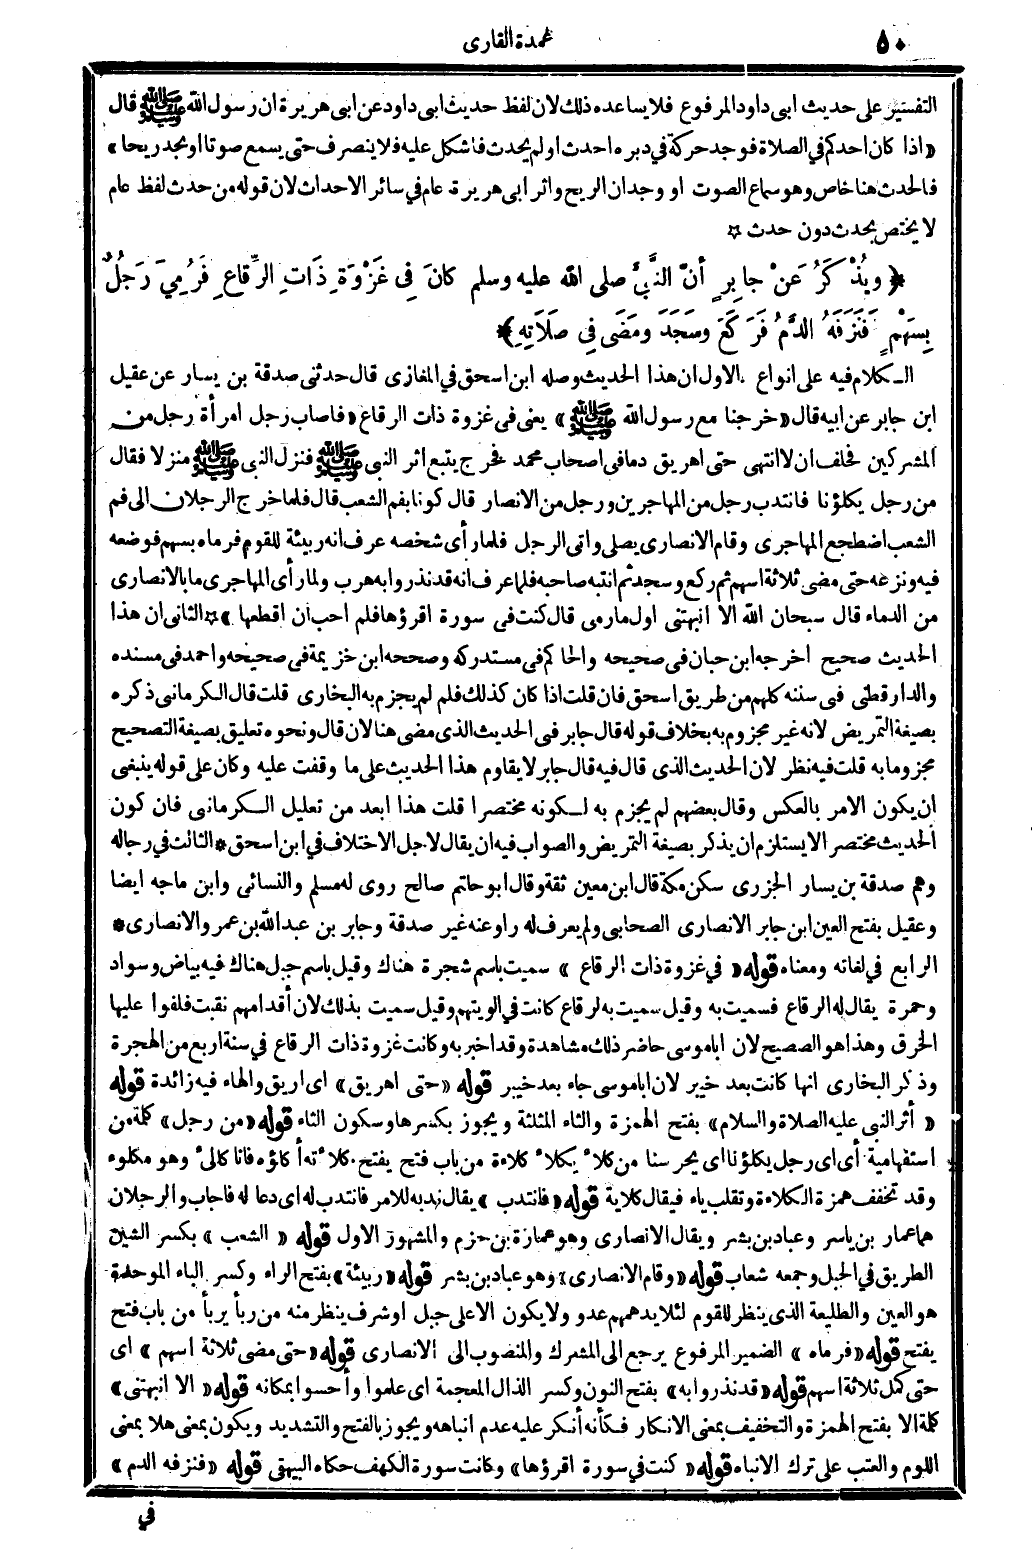 ٥٠
عمدة القارى
التفسير على حديث ابى داود المرفوع فلا يساعده ذلك لان لفظ حديث ابى داود عن ابى هريرة ان رسول الله ﷺ قال
«اذا كان احدكم فى الصلاة فوجد حركة فى دبره احدث او لم يحدث فاشكل عليه فلا ينصرف حتى يسمع صوتا او يجد ريحا»
فالحدث هنا خاص وهو سماع الصوت او وجدان الريح واثر ابى هريرة عام فى سائر الاحداث لان قوله من حدث لفظ عام
لا يختص بحدث دون حدث ☆
﴿ ويُذْكَرُ عَنْ جابِرٍ أنَّ النَّبىَّ صلى الله عليه وسلم كانَ فِى غَزْوَةِ ذَاتِ الرِّقاعِ فَرُمِيَ رَجُلٌ
بِسَهْمٍ فَنَزَفَهُ الدَّمُ فَرَكَعَ وسَجَدَ ومَضَى فِى صَلَاتِهِ﴾
الـكلام فيه على انواع . الاول ان هذا الحديث وصله ابن اسحق فى المغازى قال حدثنى صدقة بن يسار عن عقيل
ابن جابر عن ابيه قال «خرجنا مع رسول الله ﷺ » يعنى فى غزوة ذات الرقاع «فاصاب رجل امرأة رجل من
المشركين فحلف ان لا انتهى حتى اهريق دما فى اصحاب محمد فخرج يتبع اثر النبى ﷺ فنزل النبى ﷺ منزلا فقال
من رجل يكلؤنا فانتدب رجل من المهاجرين ورجل من الانصار قال كونا بفم الشعب قال فلما خرج الرجلان الى فم
الشعب اضطجع المهاجرى وقام الانصارى يصلى واتى الرجل فلما رأى شخصه عرف انه ربيئة للقوم فرماه بسهم فوضعه
فيه ونزعه حتى مضى ثلاثة اسهم ثم ركع وسجد ثم انتبه صاحبه فلما عرف انه قد نذروا به هرب ولما رأى المهاجرى ما بالانصارى
من الدماء قال سبحان الله الا انبهتنى اول ما رمى قال كنت فى سورة اقرؤها فلم احب ان اقطعها »☆ الثانى ان هذا
الحديث صحيح اخرجه ابن حبان فى صحيحه والحاكم فى مستدركه وصححه ابن خزيمة فى صحيحه واحمد فى مسنده
والدارقطنى فى سننه كلهم من طريق اسحق فان قلت اذا كان كذلك فلم لم يجزم به البخارى قلت قال الكرمانى ذكره
بصيغة التمريض لانه غير مجزوم به بخلاف قوله قال جابر فى الحديث الذى مضى هنا لان قال ونحوه تعليق بصيغة التصحيح
مجزوما به قلت فيه نظر لان الحديث الذى قال فيه قال جابر لا يقاوم هذا الحديث على ما وقفت عليه وكان على قوله ينبغى
ان يكون الامر بالعكس وقال بعضهم لم يجزم به لـكونه مختصرا قلت هذا ابعد من تعليل الـكرمانى فان كون
الحديث مختصرا لا يستلزم ان يذكر بصيغة التمريض والصواب فيه ان يقال لاجل الاختلاف فى ابن اسحق * الثالث فى رجاله
وهم صدقة بن يسار الجزرى سكن مكة قال ابن معين ثقة وقال ابو حاتم صالح روى له مسلم والنسائى وابن ماجه ايضا
وعقيل بفتح العين ابن جابر الانصارى الصحابى ولم يعرف له راو عنه غير صدقة وجابر بن عبد الله بن عمرو الانصارى *
الرابع فى لغاته ومعناه قوله « فى غزوة ذات الرقاع » سميت باسم شجرة هناك وقيل باسم جبل هناك فيه بياض وسواد
وحمرة يقال له الرقاع فسميت به وقيل سميت به لرقاع كانت فى الويتهم وقيل سميت بذلك لان أقدامهم نقبت فلفوا عليها
الخرق وهذا هو الصحيح لان ابا موسى حاضر ذلك مشاهدة وقد اخبر به وكانت غزوة ذات الرقاع فى سنة اربع من الهجرة
وذكر البخارى انها كانت بعد خيبر لان ابا موسى جاء بعد خيبر قوله «حتى اهريق» اى اريق والهاء فيه زائدة قوله
« أثر النبى عليه الصلاة والسلام» بفتح الهمزة والثاء المثلثة ويجوز بكسرها وسكون الثاء قوله «من رجل» كلمة من
استفهامية أى اى رجل يكلؤنا اى يحرسنا من كلأ يكلأ كلاءة من باب فتح يفتح كلأته أكلؤه فانا كالئ وهو مكلوء
وقد تخفف همزة الكلاءة وتقلب ياء فيقال كلاية قوله «فانتدب » يقال ندبه للامر فانتدب له اى دعا له فاجاب والرجلان
هما عمار بن ياسر وعباد بن بشر ويقال الانصارى وهو عمارة بن حزم والمشهور الاول قوله « الشعب » بكسر الشين
الطريق فى الجبل وجمعه شعاب قوله «وقام الانصارى» وهو عباد بن بشر قوله «ربيئة» بفتح الراء وكسر الباء الموحدة
هو العين والطليعة الذى ينظر للقوم لئلا يدهمهم عدو ولا يكون الا على جبل او شرف ينظر منه من ربأ يربأ من باب فتح
يفتح قوله «فرماه » الضمير المرفوع يرجع الى المشرك والمنصوب الى الانصارى قوله «حتى مضى ثلاثة اسهم » اى
حتى كمل ثلاثة اسهم قوله «قد نذروا به» بفتح النون وكسر الذال المعجمة اى علموا وأحسوا بمكانه قوله « الا انبهتنى»
كلمة الا بفتح الهمزة والتخفيف بمعنى الانكار فكأنه أنكر عليه عدم انباهه ويجوز بالفتح والتشديد ويكون بمعنى هلا بمعنى
اللوم والعتب على ترك الانباه قوله « كنت فى سورة اقرؤها» وكانت سورة الكهف حكاه البيهقى قوله «فنزفه الدم»
فى